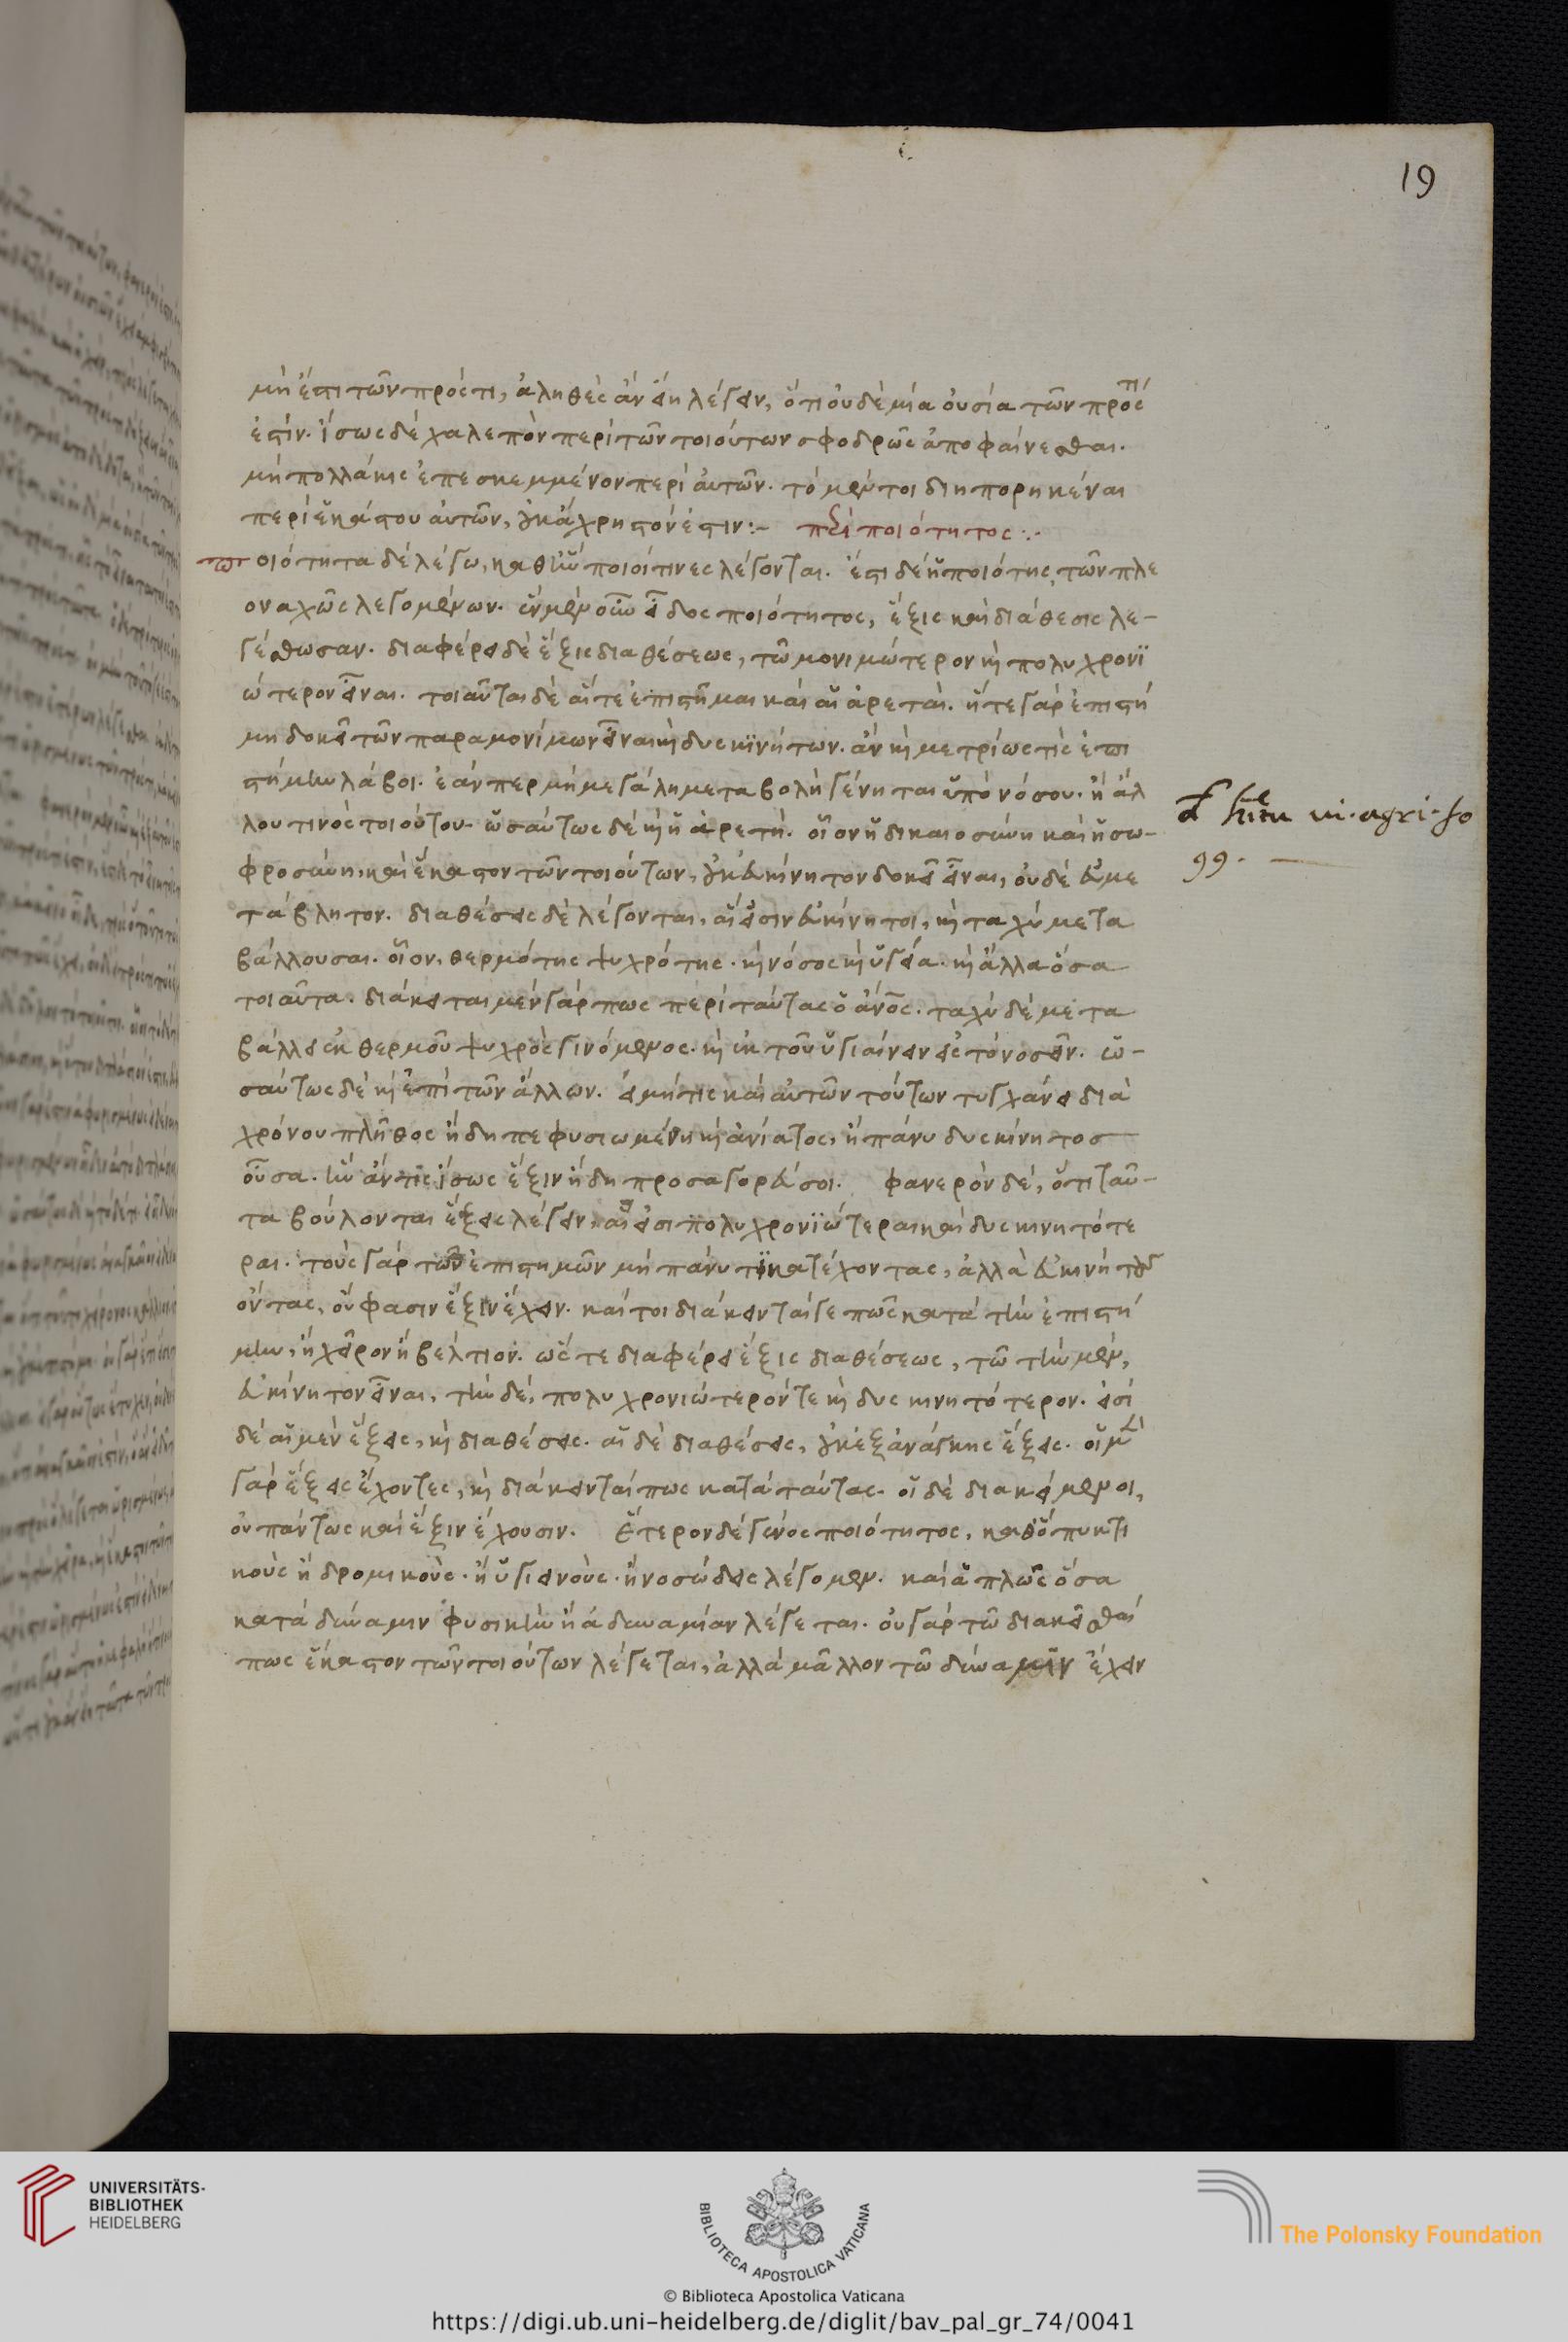 19
μὴ ἔστι τῶν πρός τι, ἀληθὲς ἂν εἴη λέγειν, ὅτι οὐδεμία οὐσία τῶν πρός τί
ἐστιν. ἴσως δὲ χαλεπὸν περὶ τῶν τοιούτων σφοδρῶς ἀποφαίνεσθαι.
μὴ πολλάκις ἐπεσκεμμένον περὶ αὐτῶν. τὸ μέντοι διηπορηκέναι
περὶ ἑκάστου αὐτῶν, οὐκ ἄχρηστόν ἐστιν:– περὶ ποιότητος:·
ποιότητα δὲ λέγω, καθ' ἣν ποιοί τινες λέγονται. ἔστι δὲ ἡ ποιότης, τῶν πλε
οναχῶς λεγομένων. ἓν μὲν οὖν εἶδος ποιότητος, ἕξις καὶ διάθεσις λε-
γέσθωσαν. διαφέρει δὲ ἕξις διαθέσεως, τῶ μονιμώτερον καὶ πολυχρονϊ
ώτερον εἶναι. τοιαῦται δὲ αἵ τε ἐπιστῆμαι καὶ αἱ ἀρεταί. ἥ τε γὰρ ἐπιστή
μη δοκεῖ τῶν παραμονίμων εἶναι καὶ δυσκϊνήτων. ἂν καὶ μετρίως τὶς ἐπι
στήμην λάβοι. ἐάν περ μὴ μεγάλη μεταβολὴ γένηται ὑπὸ νόσου. ἢ ἄλ
λου τινὸς τοιούτου. ὡσαύτως δὲ καὶ ἡ ἀρετή. οἷον ἡ δικαιοσύνη καὶ ἡ σω-
φροσύνη, καὶ ἕκαστον τῶν τοιούτων, οὐκ εὐκίνητον δοκεῖ εἶναι, οὐδὲ εὐμε
τάβλητον. διαθέσεις δὲ λέγονται, αἵ εἰσιν εὐκίνητοι, καὶ ταχὺ μετα
βάλλουσαι. οἷον, θερμότης ψυχρότης. καὶ νόσος καὶ ὑγεία. καὶ ἄλλα ὅσα
τοιαῦτα. διάκειται μὲν γάρ πως περὶ ταύτας ὁ ἄνος. ταχὺ δὲ μετα
βάλλει ἐκ θερμοῦ ψυχρὸς γινόμενος. καὶ ἐκ τοῦ ὑγιαίνειν εἰς τὸ νοσεῖν. ὡ-
σαύτως δὲ καὶ ἐπὶ τῶν ἄλλων. εἰ μή τις καὶ αὐτῶν τούτων τυγχάνει διὰ
χρόνου πλῆθος ἤδη πεφυσιωμένη καὶ ἀνίατος, ἢ πάνυ δυσκίνητος
οὖσα. ἣν ἄν τις ἴσως ἕξιν ἤδη προσαγορεύσοι. φανερὸν δέ, ὅτι ταῦ-
τα βούλονται ἕξεις λέγειν, αἵ εἰσι πολυχρονϊώτεραι καὶ δυσκινητότε
ραι. τοὺς γὰρ τῶν ἐπιστημῶν μὴ πάνυ τϊ κατέχοντας, ἀλλὰ εὐκινήτους
ὄντας, οὔ φασιν ἕξιν ἔχειν. καί τοι διάκεινταί γε πῶς κατὰ τὴν ἐπιστή
μην, ἢ χεῖρον ἢ βέλτιον. ὥς τε διαφέρει ἕξις διαθέσεως, τῶ τὴν μὲν,
εὐκίνητον εἶναι, τὴν δέ, πολυχρονιώτερόν τε καὶ δυσκινητότερον. εἰσὶ
δὲ αἱ μὲν ἕξεις, καὶ διαθέσεις. αἱ δὲ διαθέσεις, οὐκ ἐξ ἀνάγκης ἕξεις. οἱ μὲν
γὰρ ἕξεις ἔχοντες, καὶ διάκεινταί πως κατὰ ταύτας. οἱ δὲ διακείμενοι,
οὐ πάντως καὶ ἕξιν ἔχουσιν. ἕτερον δὲ γένος ποιότητος, καθ' ὃ πυκτι
κοὺς ἢ δρομικοὺς. ἢ ὑγιεινοὺς. ἢ νοσώδεις λέγομεν. καὶ ἁπλῶς ὅσα
κατὰ δύναμιν φυσικὴν ἢ ἀδυναμίαν λέγεται. οὐ γὰρ τῶ διακεῖσθαί
πως ἕκαστον τῶν τοιούτων λέγεται, ἀλλὰ μᾶλλον τῶ δύναμιν ἔχειν
vi. agri. fo
99.
UNIVERSITÄTS-
BIBLIOTHEK
HEIDELBERG
BIBLIOTECA APOSTOLICA VATICANA
The Polonsky Foundation
© Biblioteca Apostolica Vaticana
https://digi.ub.uni-heidelberg.de/diglit/bav_pal_gr_74/0041